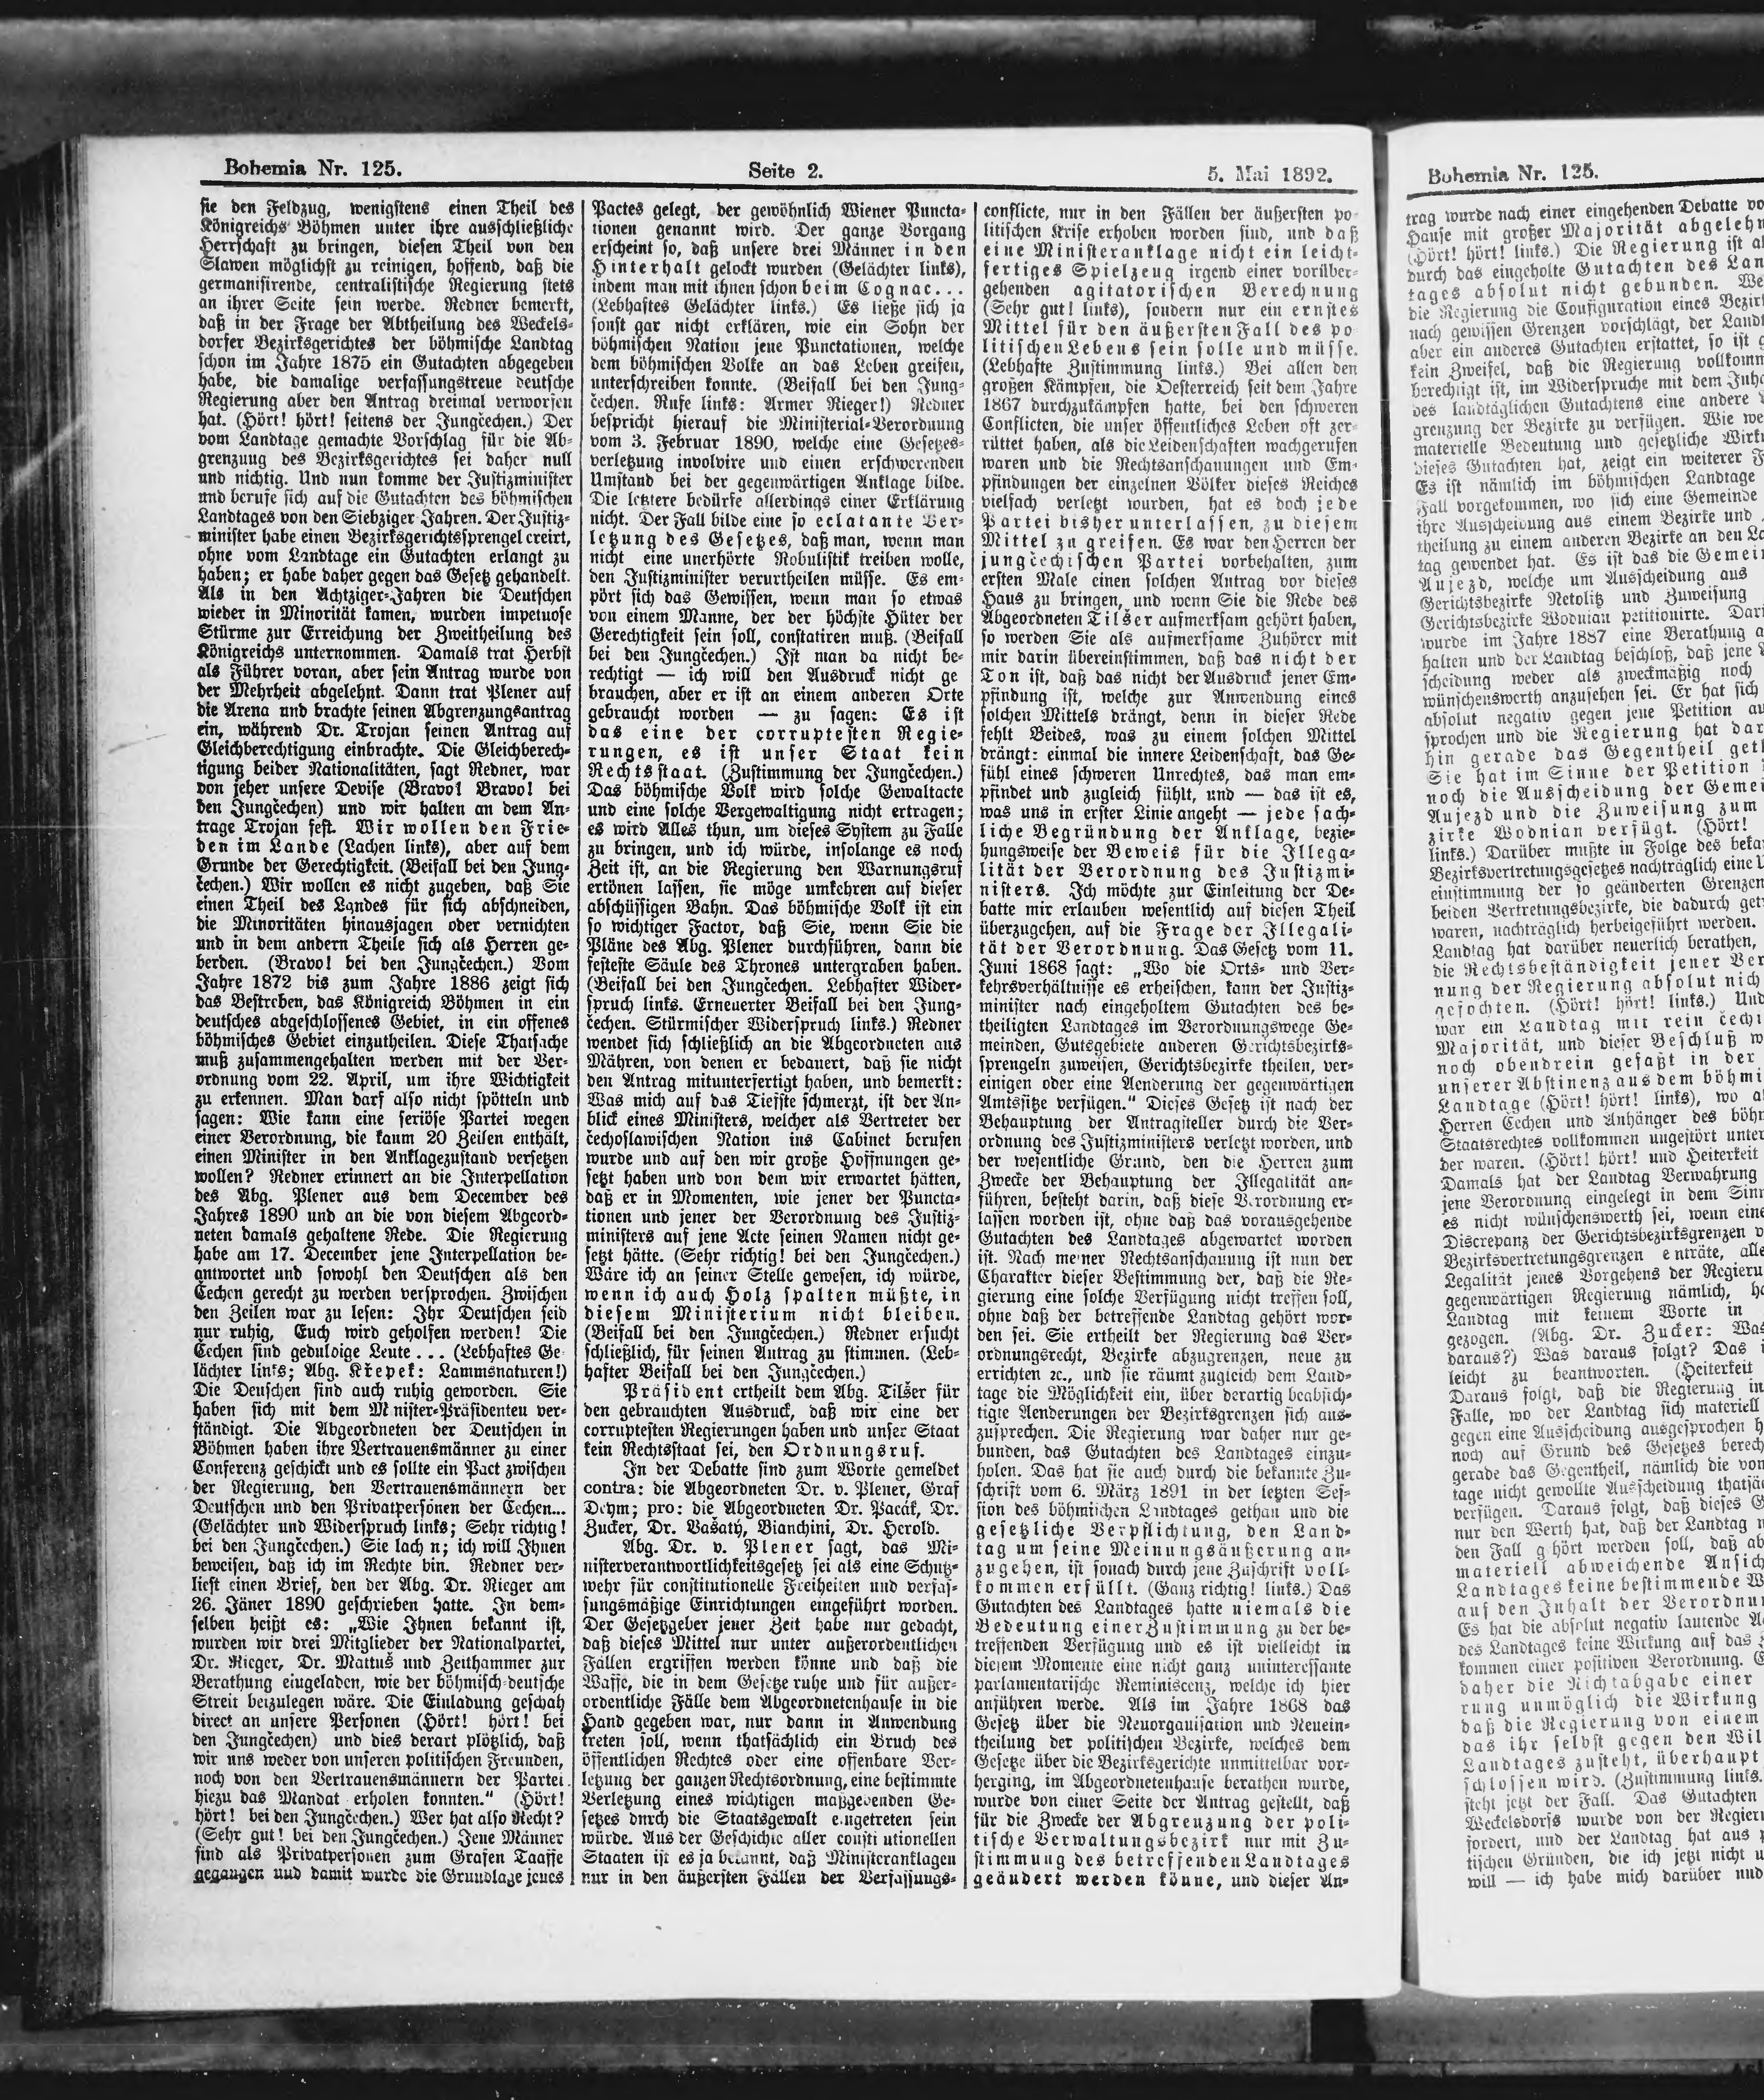 Bohemia Nr. 125.
Seite 2.
5. Mai 1892.
sie den Feldzug, wenigstens einen Theil des
Königreichs Böhmen unter ihre ausschließliche
Herrschaft zu bringen, diesen Theil von den
Slawen möglichst zu reinigen, hoffend, daß die
germanisirende, centralistische Regierung stets
an ihrer Seite sein werde. Redner bemerkt,
daß in der Frage der Abtheilung des Weckels-
dorfer Bezirksgerichtes der böhmische Landtag
schon im Jahre 1875 ein Gutachten abgegeben
habe, die damalige verfassungstreue deutsche
Regierung aber den Antrag dreimal verworfen
hat. (Hört! hört! seitens der Jungčechen.) Der
vom Landtage gemachte Vorschlag für die Ab-
grenzung des Bezirksgerichtes sei daher null
und nichtig. Und nun komme der Justizminister
und berufe sich auf die Gutachten des böhmischen
Landtages von den Siebziger-Jahren. Der Justiz-
minister habe einen Bezirksgerichtssprengel creirt,
ohne vom Landtage ein Gutachten erlangt zu
haben; er habe daher gegen das Gesetz gehandelt.
Als in den Achtziger-Jahren die Deutschen
wieder in Minorität kamen, wurden impetuose
Stürme zur Erreichung der Zweitheilung des
Königreichs unternommen. Damals trat Herbst
als Führer voran, aber sein Antrag wurde von
der Mehrheit abgelehnt. Dann trat Plener auf
die Arena und brachte seinen Abgrenzungsantrag
ein, während Dr. Trojan seinen Antrag auf
Gleichberechtigung einbrachte. Die Gleichberech-
tigung beider Nationalitäten, sagt Redner, war
von jeher unsere Devise (Bravo! Bravo! bei
den Jungčechen) und wir halten an dem An-
trage Trojan fest. Wir wollen den Frie-
den im Lande (Lachen links), aber auf dem
Grunde der Gerechtigkeit. (Beifall bei den Jung-
čechen.) Wir wollen es nicht zugeben, daß Sie
einen Theil des Landes für sich abschneiden,
die Minoritäten hinausjagen oder vernichten
und in dem andern Theile sich als Herren ge-
berden. (Bravo! bei den Jungčechen.) Vom
Jahre 1872 bis zum Jahre 1886 zeigt sich
das Bestreben, das Königreich Böhmen in ein
deutsches abgeschlossenes Gebiet, in ein offenes
böhmisches Gebiet einzutheilen. Diese Thatsache
muß zusammengehalten werden mit der Ver-
ordnung vom 22. April, um ihre Wichtigkeit
zu erkennen. Man darf also nicht spötteln und
sagen: Wie kann eine seriöse Partei wegen
einer Verordnung, die kaum 20 Zeilen enthält,
einen Minister in den Anklagezustand versetzen
wollen? Redner erinnert an die Interpellation
des Abg. Plener aus dem December des
Jahres 1890 und an die von diesem Abgeord-
neten damals gehaltene Rede. Die Regierung
habe am 17. December jene Interpellation be-
antwortet und sowohl den Deutschen als den
Čechen gerecht zu werden versprochen. Zwischen
den Zeilen war zu lesen: Ihr Deutschen seid
nur ruhig, Euch wird geholfen werden! Die
Čechen sind geduldige Leute... (Lebhaftes Ge-
lächter links; Abg. Křepek: Lammsnaturen!)
Die Deutschen sind auch ruhig geworden. Sie
haben sich mit dem Minister-Präsidenten ver-
ständigt. Die Abgeordneten der Deutschen in
Böhmen haben ihre Vertrauensmänner zu einer
Conferenz geschickt und es sollte ein Pact zwischen
der Regierung, den Vertrauensmännern der
Deutschen und den Privatpersonen der Čechen...
(Gelächter und Widerspruch links; Sehr richtig!
bei den Jungčechen.) Sie lach n; ich will Ihnen
beweisen, daß ich im Rechte bin. Redner ver-
liest einen Brief, den der Abg. Dr. Rieger am
26. Jäner 1890 geschrieben hatte. In dem-
selben heißt es: „Wie Ihnen bekannt ist,
wurden wir drei Mitglieder der Nationalpartei,
Dr. Rieger, Dr. Mattuš und Zeithammer zur
Berathung eingeladen, wie der böhmisch-deutsche
Streit beizulegen wäre. Die Einladung geschah
direct an unsere Personen (Hört! hört! bei
den Jungčechen) und dies derart plötzlich, daß
wir uns weder von unseren politischen Freunden,
noch von den Vertrauensmännern der Partei
hiezu das Mandat erholen konnten.“ (Hört!
hört! bei den Jungčechen.) Wer hat also Recht?
(Sehr gut! bei den Jungčechen.) Jene Männer
sind als Privatpersonen zum Grafen Taaffe
gegangen und damit wurde die Grundlage jenes
Pactes gelegt, der gewöhnlich Wiener Puncta-
tionen genannt wird. Der ganze Vorgang
erscheint so, daß unsere drei Männer in den
Hinterhalt gelockt wurden (Gelächter links),
indem man mit ihnen schon beim Cognac...
(Lebhaftes Gelächter links.) Es ließe sich ja
sonst gar nicht erklären, wie ein Sohn der
böhmischen Nation jene Punctationen, welche
dem böhmischen Volke an das Leben greifen,
unterschreiben konnte. (Beifall bei den Jung-
čechen. Rufe links: Armer Rieger!) Redner
bespricht hierauf die Ministerial-Verordnung
vom 3. Februar 1890, welche eine Gesetzes-
verletzung involvire und einen erschwerenden
Umstand bei der gegenwärtigen Anklage bilde.
Die letztere bedürfe allerdings einer Erklärung
nicht. Der Fall bilde eine so eclatante Ver-
letzung des Gesetzes, daß man, wenn man
nicht eine unerhörte Robulistik treiben wolle,
den Justizminister verurtheilen müsse. Es em-
pört sich das Gewissen, wenn man so etwas
von einem Manne, der der höchste Hüter der
Gerechtigkeit sein soll, constatiren muß. (Beifall
bei den Jungčechen.) Ist man da nicht be-
rechtigt — ich will den Ausdruck nicht ge
brauchen, aber er ist an einem anderen Orte
gebraucht worden — zu sagen: Es ist
das eine der corruptesten Regie-
rungen, es ist unser Staat kein
Rechtsstaat. (Zustimmung der Jungčechen.)
Das böhmische Volk wird solche Gewaltacte
und eine solche Vergewaltigung nicht ertragen;
es wird Alles thun, um dieses System zu Falle
zu bringen, und ich würde, insolange es noch
Zeit ist, an die Regierung den Warnungsruf
ertönen lassen, sie möge umkehren auf dieser
abschüssigen Bahn. Das böhmische Volk ist ein
so wichtiger Factor, daß Sie, wenn Sie die
Pläne des Abg. Plener durchführen, dann die
festeste Säule des Thrones untergraben haben.
(Beifall bei den Jungčechen. Lebhafter Wider-
spruch links. Erneuerter Beifall bei den Jung-
čechen. Stürmischer Widerspruch links.) Redner
wendet sich schließlich an die Abgeordneten aus
Mähren, von denen er bedauert, daß sie nicht
den Antrag mitunterfertigt haben, und bemerkt:
Was mich auf das Tiefste schmerzt, ist der An-
blick eines Ministers, welcher als Vertreter der
čechoslawischen Nation ins Cabinet berufen
wurde und auf den wir große Hoffnungen ge-
setzt haben und von dem wir erwartet hätten,
daß er in Momenten, wie jener der Puncta-
tionen und jener der Verordnung des Justiz-
ministers auf jene Acte seinen Namen nicht ge-
setzt hätte. (Sehr richtig! bei den Jungčechen.)
Wäre ich an seiner Stelle gewesen, ich würde,
wenn ich auch Holz spalten müßte, in
diesem Ministerium nicht bleiben.
(Beifall bei den Jungčechen.) Redner ersucht
schließlich, für seinen Antrag zu stimmen. (Leb-
hafter Beifall bei den Jungčechen.)
Präsident ertheilt dem Abg. Tilšer für
den gebrauchten Ausdruck, daß wir eine der
corruptesten Regierungen haben und unser Staat
kein Rechtsstaat sei, den Ordnungsruf.
In der Debatte sind zum Worte gemeldet
contra: die Abgeordneten Dr. v. Plener, Graf
Deym; pro: die Abgeordneten Dr. Pacák, Dr.
Zucker, Dr. Vašatý, Bianchini, Dr. Herold.
Abg. Dr. v. Plener sagt, das Mi-
nisterverantwortlichkeitsgesetz sei als eine Schutz-
wehr für constitutionelle Freiheiten und verfas-
sungsmäßige Einrichtungen eingeführt worden.
Der Gesetzgeber jener Zeit habe nur gedacht,
daß dieses Mittel nur unter außerordentlichen
Fällen ergriffen werden könne und daß die
Waffe, die in dem Gesetze ruhe und für außer-
ordentliche Fälle dem Abgeordnetenhause in die
Hand gegeben war, nur dann in Anwendung
treten soll, wenn thatsächlich ein Bruch des
öffentlichen Rechtes oder eine offenbare Ver-
letzung der ganzen Rechtsordnung, eine bestimmte
Verletzung eines wichtigen maßgebenden Ge-
setzes durch die Staatsgewalt eingetreten sein
würde. Aus der Geschichte aller consti utionellen
Staaten ist es ja bekannt, daß Ministeranklagen
nur in den äußersten Fällen der Verfassungs-
conflicte, nur in den Fällen der äußersten po
litischen Krise erhoben worden sind, und daß
eine Ministeranklage nicht ein leicht-
fertiges Spielzeug irgend einer vorüber-
gehenden agitatorischen Berechnung
(Sehr gut! links), sondern nur ein ernstes
Mittel für den äußersten Fall des po
litischen Lebens sein solle und müsse.
(Lebhafte Zustimmung links.) Bei allen den
großen Kämpfen, die Oesterreich seit dem Jahre
1867 durchzukämpfen hatte, bei den schweren
Conflicten, die unser öffentliches Leben oft zer-
rüttet haben, als die Leidenschaften wachgerufen
waren und die Rechtsanschauungen und Em-
pfindungen der einzelnen Völker dieses Reiches
vielfach verletzt wurden, hat es doch jede
Partei bisher unterlassen, zu diesem
Mittel zu greifen. Es war den Herren der
jungčechischen Partei vorbehalten, zum
ersten Male einen solchen Antrag vor dieses
Haus zu bringen, und wenn Sie die Rede des
Abgeordneten Tilšer aufmerksam gehört haben,
so werden Sie als aufmerksame Zuhörer mit
mir darin übereinstimmen, daß das nicht der
Ton ist, daß das nicht der Ausdruck jener Em-
pfindung ist, welche zur Anwendung eines
solchen Mittels drängt, denn in dieser Rede
fehlt Beides, was zu einem solchen Mittel
drängt: einmal die innere Leidenschaft, das Ge-
fühl eines schweren Unrechtes, das man em-
pfindet und zugleich fühlt, und — das ist es,
was uns in erster Linie angeht — jede sach-
liche Begründung der Anklage, bezie-
hungsweise der Beweis für die Illega-
lität der Verordnung des Justizmi-
nisters. Ich möchte zur Einleitung der De-
batte mir erlauben wesentlich auf diesen Theil
überzugehen, auf die Frage der Illegali-
tät der Verordnung. Das Gesetz vom 11.
Juni 1868 sagt: „Wo die Orts- und Ver-
kehrsverhältnisse es erheischen, kann der Justiz-
minister nach eingeholtem Gutachten des be-
theiligten Landtages im Verordnungswege Ge-
meinden, Gutsgebiete anderen Gerichtsbezirks-
sprengeln zuweisen, Gerichtsbezirke theilen, ver-
einigen oder eine Aenderung der gegenwärtigen
Amtssitze verfügen.“ Dieses Gesetz ist nach der
Behauptung der Antragsteller durch die Ver-
ordnung des Justizministers verletzt worden, und
der wesentliche Grund, den die Herren zum
Zwecke der Behauptung der Illegalität an-
führen, besteht darin, daß diese Verordnung er-
lassen worden ist, ohne daß das vorausgehende
Gutachten des Landtages abgewartet worden
ist. Nach meiner Rechtsanschauung ist nun der
Charakter dieser Bestimmung der, daß die Re-
gierung eine solche Verfügung nicht treffen soll,
ohne daß der betreffende Landtag gehört wor-
den sei. Sie ertheilt der Regierung das Ver-
ordnungsrecht, Bezirke abzugrenzen, neue zu
errichten ꝛc., und sie räumt zugleich dem Land-
tage die Möglichkeit ein, über derartig beabsich-
tigte Aenderungen der Bezirksgrenzen sich aus-
zusprechen. Die Regierung war daher nur ge-
bunden, das Gutachten des Landtages einzu-
holen. Das hat sie auch durch die bekannte Zu-
schrift vom 6. März 1891 in der letzten Ses-
sion des böhmischen Landtages gethan und die
gesetzliche Verpflichtung, den Land-
tag um seine Meinungsäußerung an-
zugehen, ist sonach durch jene Zuschrift voll-
kommen erfüllt. (Ganz richtig! links.) Das
Gutachten des Landtages hatte niemals die
Bedeutung einer Zustimmung zu der be-
treffenden Verfügung und es ist vielleicht in
diesem Momente eine nicht ganz uninteressante
parlamentarische Reminiscenz, welche ich hier
anführen werde. Als im Jahre 1868 das
Gesetz über die Neuorganisation und Neuein-
theilung der politischen Bezirke, welches dem
Gesetze über die Bezirksgerichte unmittelbar vor-
herging, im Abgeordnetenhause berathen wurde,
wurde von einer Seite der Antrag gestellt, daß
für die Zwecke der Abgrenzung der poli-
tische Verwaltungsbezirk nur mit Zu-
stimmung des betreffenden Landtages
geändert werden könne, und dieser An-
Bohemia Nr. 125.
trag wurde nach einer eingehenden Debatte vo
Hause mit großer Majorität abgelehn
(Hört! hört! links.) Die Regierung ist a
durch das eingeholte Gutachten des Lan
tages absolut nicht gebunden. We
die Regierung die Configuration eines Bezir
nach gewissen Grenzen vorschlägt, der Landt
aber ein anderes Gutachten erstattet, so ist
kein Zweifel, daß die Regierung vollkomm
berechtigt ist, im Widerspruche mit dem Inha
des landtäglichen Gutachtens eine andere
grenzung der Bezirke zu verfügen. Wie we
materielle Bedeutung und gesetzliche Wirk
dieses Gutachten hat, zeigt ein weiterer F
Es ist nämlich im böhmischen Landtage
Fall vorgekommen, wo sich eine Gemeinde
ihre Ausscheidung aus einem Bezirke und
theilung zu einem anderen Bezirke an den La
tag gewendet hat. Es ist das die Gemei
Aujezd, welche um Ausscheidung aus
Gerichtsbezirke Netolitz und Zuweisung
Gerichtsbezirke Wodnian petitionirte. Dari
wurde im Jahre 1887 eine Berathung a
halten und der Landtag beschloß, daß jene
scheidung weder als zweckmäßig noch
wünschenswerth anzusehen sei. Er hat sich
absolut negativ gegen jene Petition au
sprochen und die Regierung hat dar
hin gerade das Gegentheil geth
Sie hat im Sinne der Petition
noch die Ausscheidung der Gemei
Aujezd und die Zuweisung zum
zirke Wodnian verfügt. (Hört!
links.) Darüber mußte in Folge des beka
Bezirksvertretungsgesetzes nachträglich eine U
einstimmung der so geänderten Grenzen
beiden Vertretungsbezirke, die dadurch get
waren, nachträglich herbeigeführt werden.
Landtag hat darüber neuerlich berathen,
die Rechtsbeständigkeit jener Ver
nung der Regierung absolut nich
gefochten. (Hört! hört! links.) Und
war ein Landtag mit rein čechi
Majorität, und dieser Beschluß w
noch obendrein gefaßt in der
unserer Abstinenz aus dem böhmi
Landtage (Hört! hört! links), wo a
Herren Čechen und Anhänger des böhm
Staatsrechtes vollkommen ungestört unter
der waren. (Hört! hört! und Heiterkeit
Damals hat der Landtag Verwahrung
jene Verordnung eingelegt in dem Sinn
es nicht wünschenswerth sei, wenn eine
Discrepanz der Gerichtsbezirksgrenzen
Bezirksvertretungsgrenzen e nträte, alle
Legalität jenes Vorgehens der Regieru
gegenwärtigen Regierung nämlich, ha
Landtag mit keinem Worte in
gezogen. (Abg. Dr. Zucker: Was
daraus?) Was daraus folgt? Das
leicht zu beantworten. (Heiterkeit
Daraus folgt, daß die Regierung in
Falle, wo der Landtag sich materiell
gegen eine Ausscheidung ausgesprochen h
noch auf Grund des Gesetzes berech
gerade das Gegentheil, nämlich die von
tage nicht gewollte Ausscheidung thatsäc
verfügen. Daraus folgt, daß dieses G
nur den Werth hat, daß der Landtag
den Fall g hört werden soll, daß ab
materiell abweichende Ansich
Landtages keine bestimmende W
auf den Inhalt der Verordnu
Es hat die absolut negativ lautende
des Landtages keine Wirkung auf das
kommen einer positiven Verordnung.
daher die Nichtabgabe einer
rung unmöglich die Wirkung
daß die Regierung von einem
das ihr selbst gegen den Wil
Landtages zusteht, überhaupt
schlossen wird. (Zustimmung links.
steht jetzt der Fall. Das Gutachten
Weckelsdorfs wurde von der Regier
fordert, und der Landtag hat aus
tischen Gründen, die ich jetzt nicht u
will — ich habe mich darüber nud